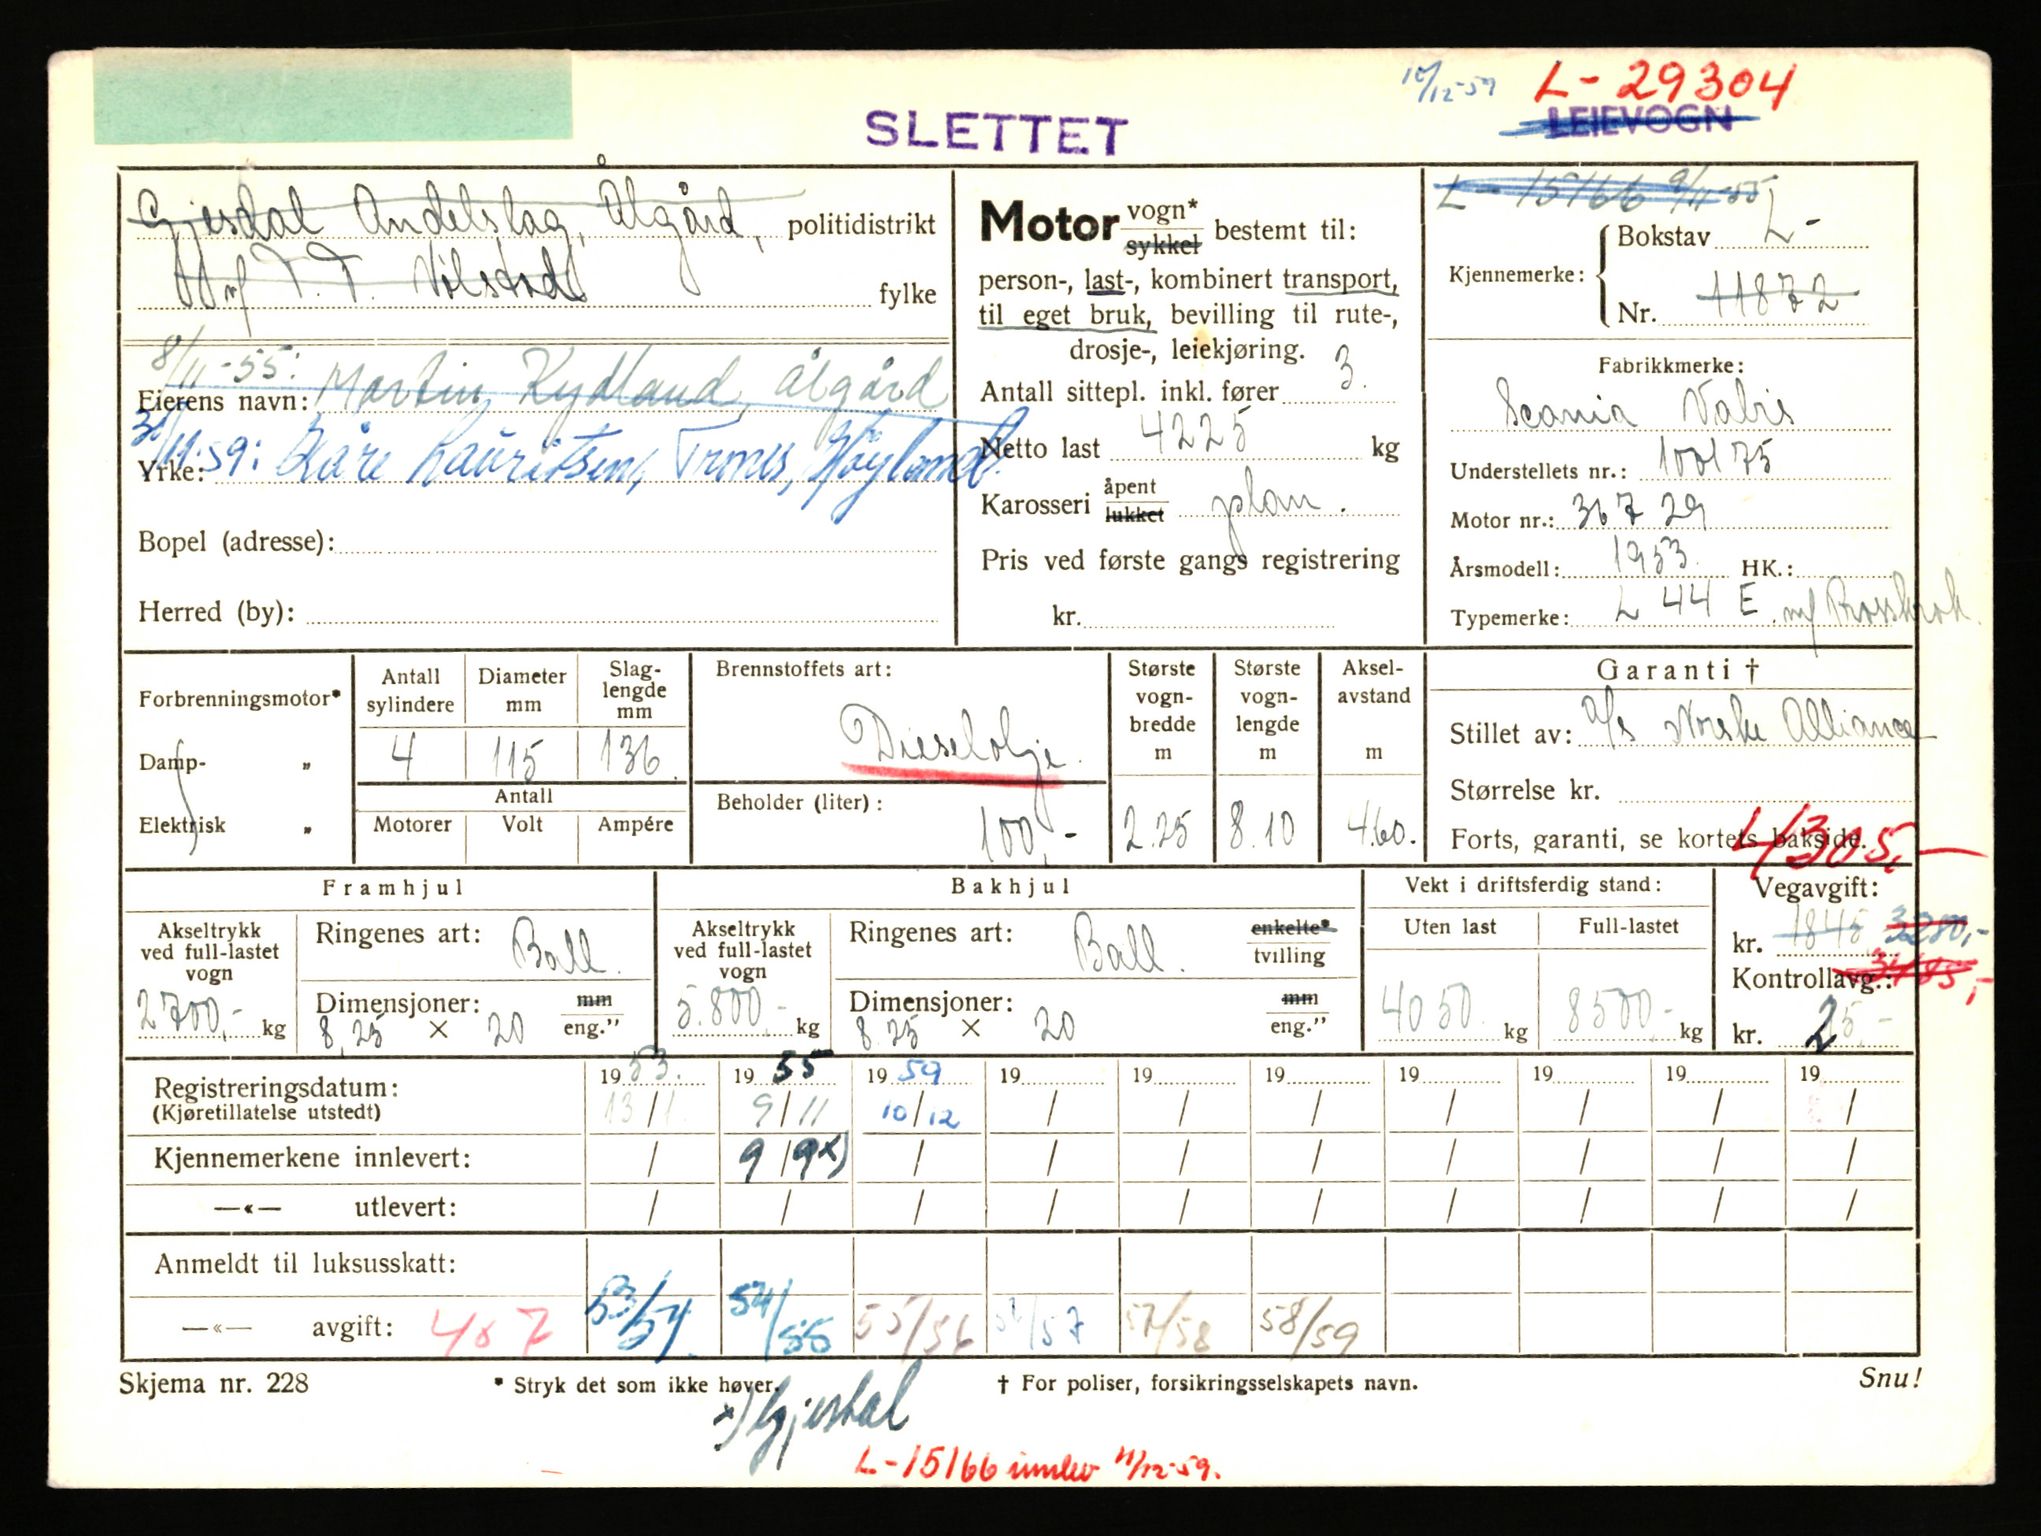 10/12-59 L-29304
SLETTET
LEIEVOGN
Gjesdal Andelslag, Ålgård, politidistrikt
v/ T. T. fylke
8/11-55: Martin Kydland, Ålgård
Eierens navn:
30/11-59: Kåre Lauritsen, Trones, Høyland.
Yrke:
Bopel (adresse):
Herred (by):
Motor vogn* sykkel bestemt til:
person-, last-, kombinert transport,
til eget bruk, bevilling til rute-,
drosje-, leiekjøring.
Antall sittepl. inkl. fører 3.
Netto last 4225 kg
Karosseri åpent lukket plan.
Pris ved første gangs registrering
kr.
L-15166 9/11-55
Kjennemerke: Bokstav L-
Nr. 11872
Fabrikkmerke:
Scania Vabis
Understellets nr.: 100175
Motor nr.: 36729
Årsmodell: 1953. HK.:
Typemerke: L 44 E m/
Forbrenningsmotor*
Damp- „
Elektrisk „
Antall sylindere 4
Diameter mm 115
Slaglengde mm 136.
Antall
Motorer Volt Ampére
Brennstoffets art:
Dieselolje.
Beholder (liter): 100,-
Største vognbredde m 2.25
Største vognlengde m 8.10
Akselavstand m 4.60.
Garanti †
Stillet av: A/S Norske Alliance
Størrelse kr.
Forts, garanti, se kortets bakside.
4305,-
Framhjul
Akseltrykk ved full-lastet vogn 2700,- kg
Ringenes art: Ball.
Dimensjoner: 8.25 × 20 mm eng.”
Bakhjul
Akseltrykk ved full-lastet vogn 5.800,- kg
Ringenes art: Ball. enkelte* tvilling
Dimensjoner: 8.25 × 20 mm eng.”
Vekt i driftsferdig stand:
Uten last 4050 kg
Full-lastet 8500,- kg
Vegavgift:
kr. 1845 3280,-
3485,-
Kontrollavg.:
kr. 25,-
Registreringsdatum: 1953. 1955 1959 19 19 19 19 19 19 19
(Kjøretillatelse utstedt) 13/1. 9/11 10/12 / / / / / / /
Kjennemerkene innlevert: / 9/9x) / / / / / / / /
—«— utlevert: / / / / / / / / / /
Anmeldt til luksusskatt:
—«— avgift: 407 53/54. 54/55 55/56 56/57 57/58 58/59
Skjema nr. 228 * Stryk det som ikke høver. † For poliser, forsikringsselskapets navn. Snu!
x) Gjesdal
L-15166 innlev 11/12-59.